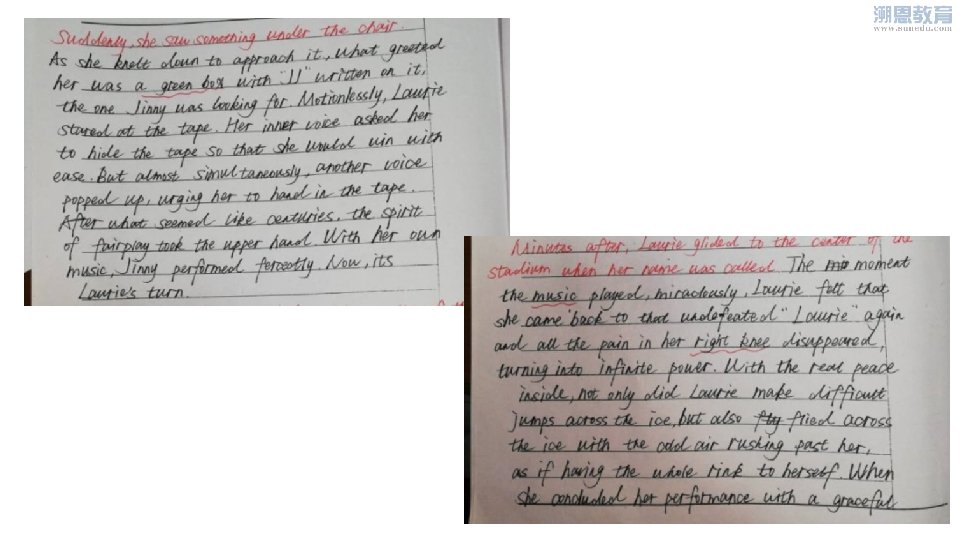 溯恩教育
www.sunedu.com
Suddenly, she saw something under the chair.
As she knelt down to approach it, what greeted
her was a green box with "JJ" written on it,
the one Jinny was looking for. Motionlessly, Laurie
stared at the tape. Her inner voice asked her
to hide the tape so that she would win with
ease. But almost simultaneously, another voice
popped up, urging her to hand in the tape.
After what seemed like centuries, the spirit
of fairplay took the upper hand. With her own
music, Jinny performed fercectly Now, its
Laurie's turn.
Minutes after, Laurie glided to the center of the
stadium when her name was called. The moment
the music played, miraculously, Laurie felt that
she came back to that undefeated "Laurie" again
and all the pain in her right knee disappeared,
turning into infinite power. With the real peace
inside, not only did Laurie make difficult
jumps across the ice, but also flied across
the ice with the cold air rushing past her,
as if having the whole rink to herself. When
she concluded her performance with a graceful